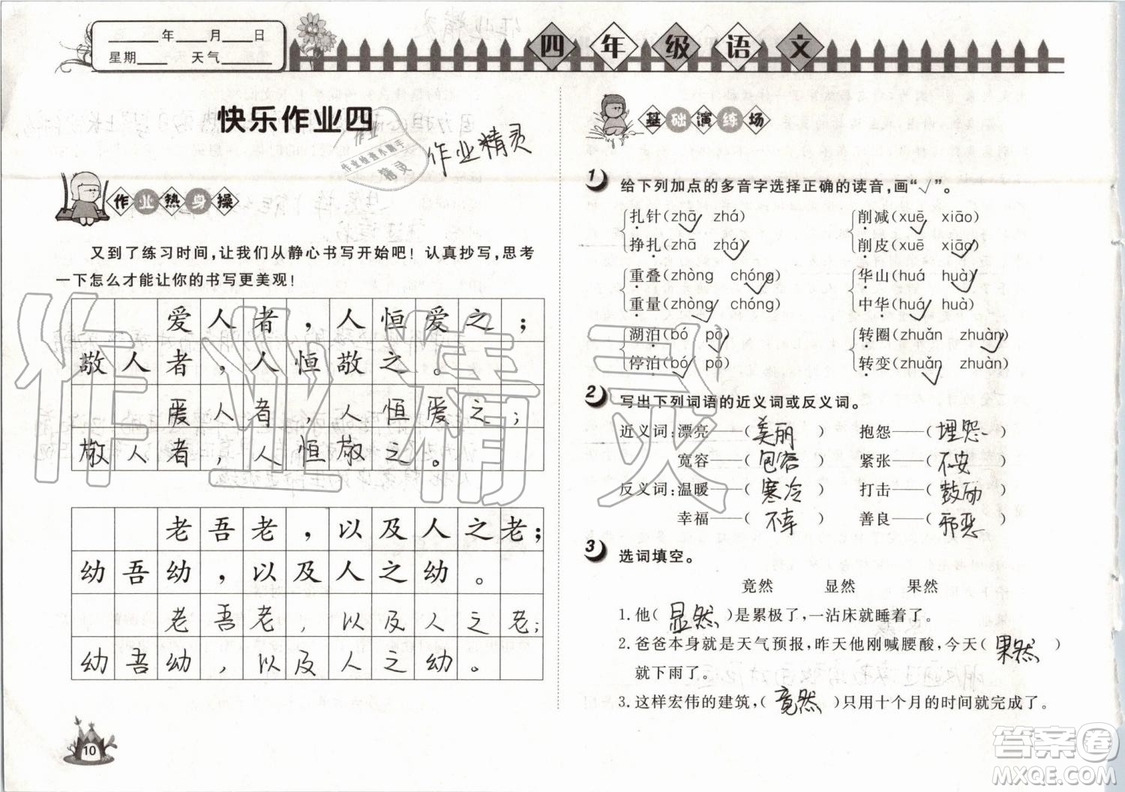 ____年____月____日
星期____ 天气______
四年级语文
快乐作业四
作业精灵
作业热身操
又到了练习时间，让我们从静心书写开始吧！认真抄写，思考
一下怎么才能让你的书写更美观！
爱人者，人恒爱之；
敬人者，人恒敬之。
爱人者，人恒爱之；
敬人者，人恒敬之。
老吾老，以及人之老；
幼吾幼，以及人之幼。
老吾老，以及人之老；
幼吾幼，以及人之幼。
10
基础演练场
1 给下列加点的多音字选择正确的读音，画“√”。
扎针(zhā√ zhá) 削减(xuē√ xiāo)
挣扎(zhā zhá√) 削皮(xuē xiāo√)
重叠(zhòng chóng√) 华山(huá huà√)
重量(zhòng√ chóng) 中华(huá√ huà)
湖泊(bó pō√) 转圈(zhuǎn zhuàn√)
停泊(bó√ pō) 转变(zhuǎn√ zhuàn)
2 写出下列词语的近义词或反义词。
近义词：漂亮——(美丽) 抱怨——(埋怨)
宽容——(包容) 紧张——(不安)
反义词：温暖——(寒冷) 打击——(鼓励)
幸福——(不幸) 善良——(邪恶)
3 选词填空。
竟然 显然 果然
1.他(显然)是累极了，一沾床就睡着了。
2.爸爸本身就是天气预报，昨天他刚喊腰酸，今天(果然)
就下雨了。
3.这样宏伟的建筑，(竟然)只用十个月的时间就完成了。
作业精灵
答案卷
MXQE.COM